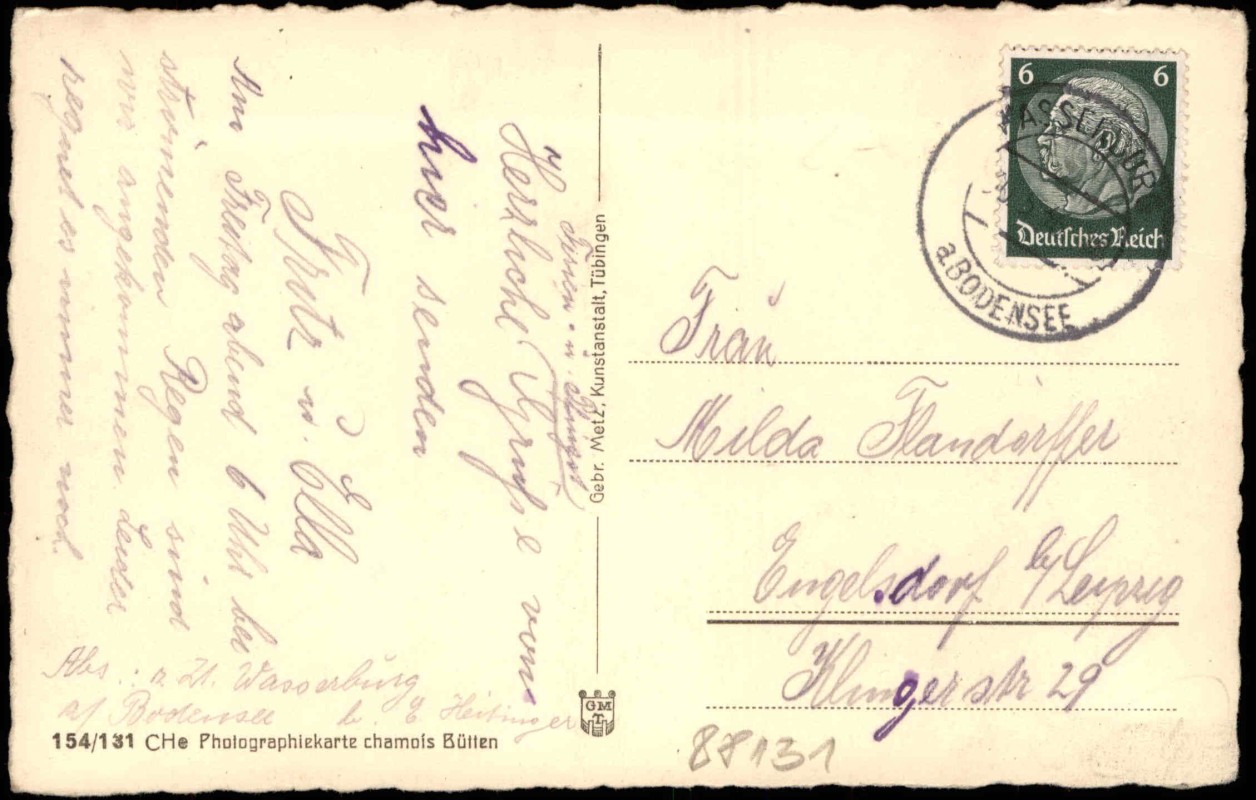 Herrliche Grüsse von
hier senden
Fritz u. Ella
Am Freitag abend 6 Uhr bei
strömenden Regen sind
wir angekommen. Leider
regnet es immer noch.
Abs.: z. Zt. Wasserburg
a/ Bodensee b. E. Heitinger
154/131 CHe Photographiekarte chamois Bütten
Gebr. Metz, Kunstanstalt, Tübingen
GMT
6 6
Deutsches Reich
WASSERBURG
a. BODENSEE
Frau
Milda Flandörffer
Engelsdorf b/Leipzig
Klingerstr 29
88131